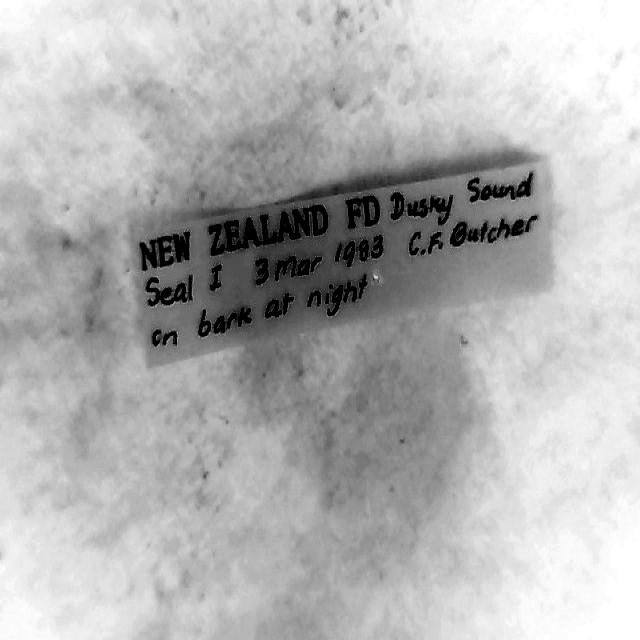 NEW ZEALAND FD Dusky Sound
Seal I 3 Mar 1983 C.F. Butcher
on bank at night